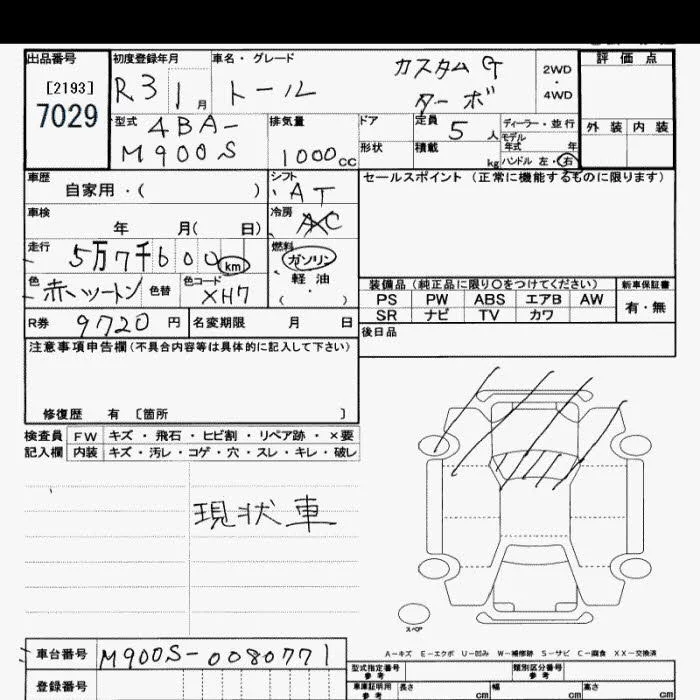 出品番号
[2193]
7029
初度登録年月
R3 1月
車名・グレード
トール
カスタムG
ターボ
2WD
・
4WD
評価点
外装 内装
型式
4BA-
M900S
排気量
1000cc
ドア
定員 5人
ディーラー・並行
モデル
年式 年
形状
積載 kg
ハンドル 左・右
車歴
自家用・( )
シフト
・AT
セールスポイント(正常に機能するものに限ります)
車検
年 月( 日)
冷房
AC
走行
5万7千600km
燃料
ガソリン
軽油
・( )
色
赤い ツートン
色替
色コード
XH7
装備品(純正品に限り〇をつけてください)
新車保証書
PS PW ABS エアB AW
有・無
SR ナビ TV カワ
R券 9720円
名変期限 月 日
後日品
注意事項申告欄(不具合内容等は具体的に記入して下さい)
修復歴 有 〔箇所 〕
検査員
記入欄
FW キズ・飛石・ヒビ割・リペア跡・×要
内装 キズ・汚レ・コゲ・穴・スレ・キレ・破レ
現状車
スペア
A-キズ E-エクボ U-凹み W-補修跡 S-サビ C-腐食 XX-交換済
車台番号 M900S-0080771
登録番号
型式指定番号
参考
類別区分番号
参考
車庫証明用
参考
長さ cm
幅 cm
高さ cm